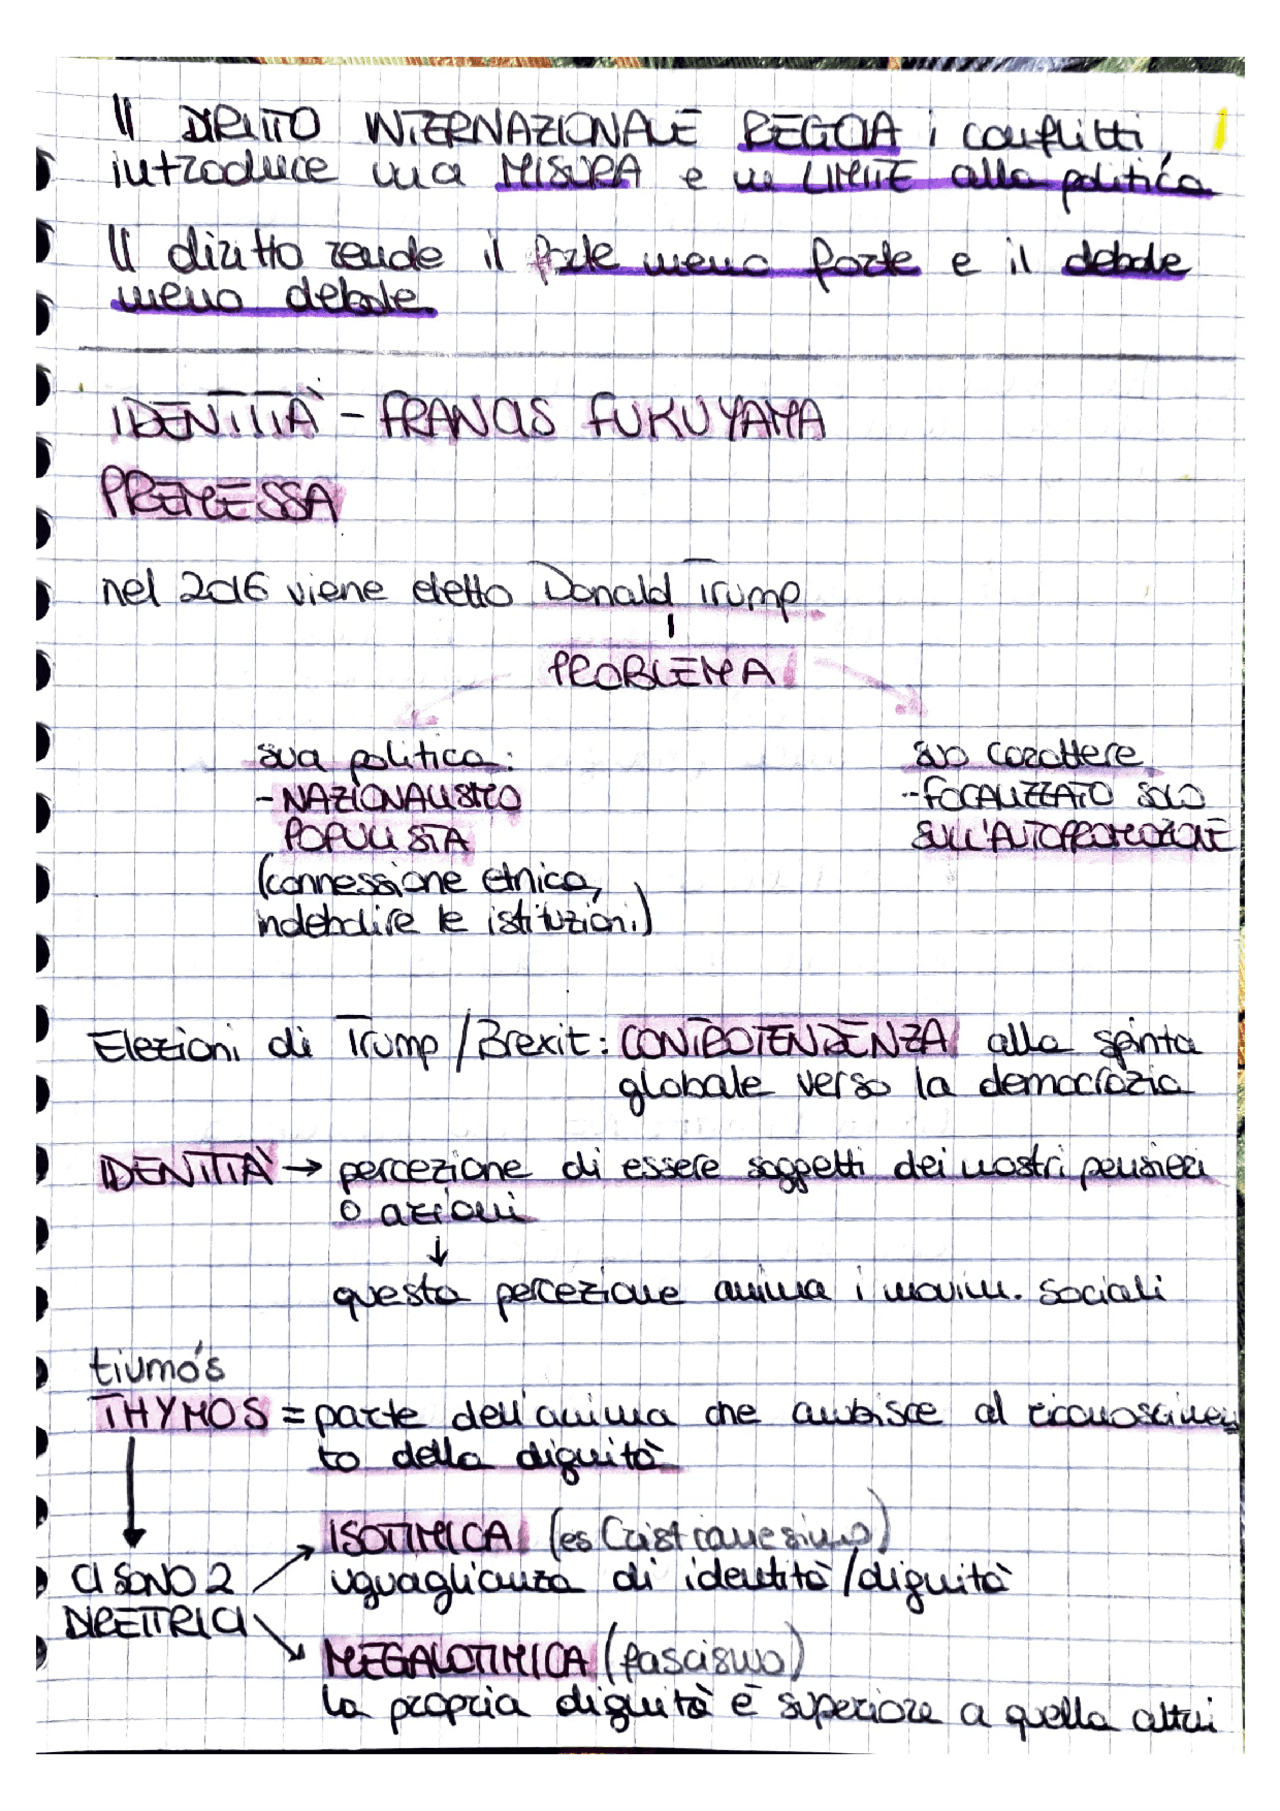 Il DIRITTO INTERNAZIONALE REGOLA i conflitti,
introduce una MISURA e un LIMITE alla politica
Il diritto rende il forte meno forte e il debole
meno debole
IDENTITÀ - FRANCIS FUKUYAMA
PREMESSA
nel 2016 viene eletto Donald Trump
PROBLEMA
sua politica:
- NAZIONALISTICO
POPULISTA
(connessione etnica,
indebolire le istituzioni)
suo carattere
- FOCALIZZATO SOLO
SULL'AUTOPROMOZIONE
Elezioni di Trump/Brexit: CONTROTENDENZA alla spinta
globale verso la democrazia
IDENTITÀ → percezione di essere soggetti dei nostri pensieri
o azioni
↓
questa percezione anima i movim. sociali
tiumo's
THYMOS = parte dell'anima che ambisce al riconoscimen
to della dignità
CI SONO 2
DIRETTRICI
ISOTIMICA (es Cristianesimo)
uguaglianza di identità/dignità
MEGALOTIMICA (fascismo)
la propria dignità è superiore a quella altrui